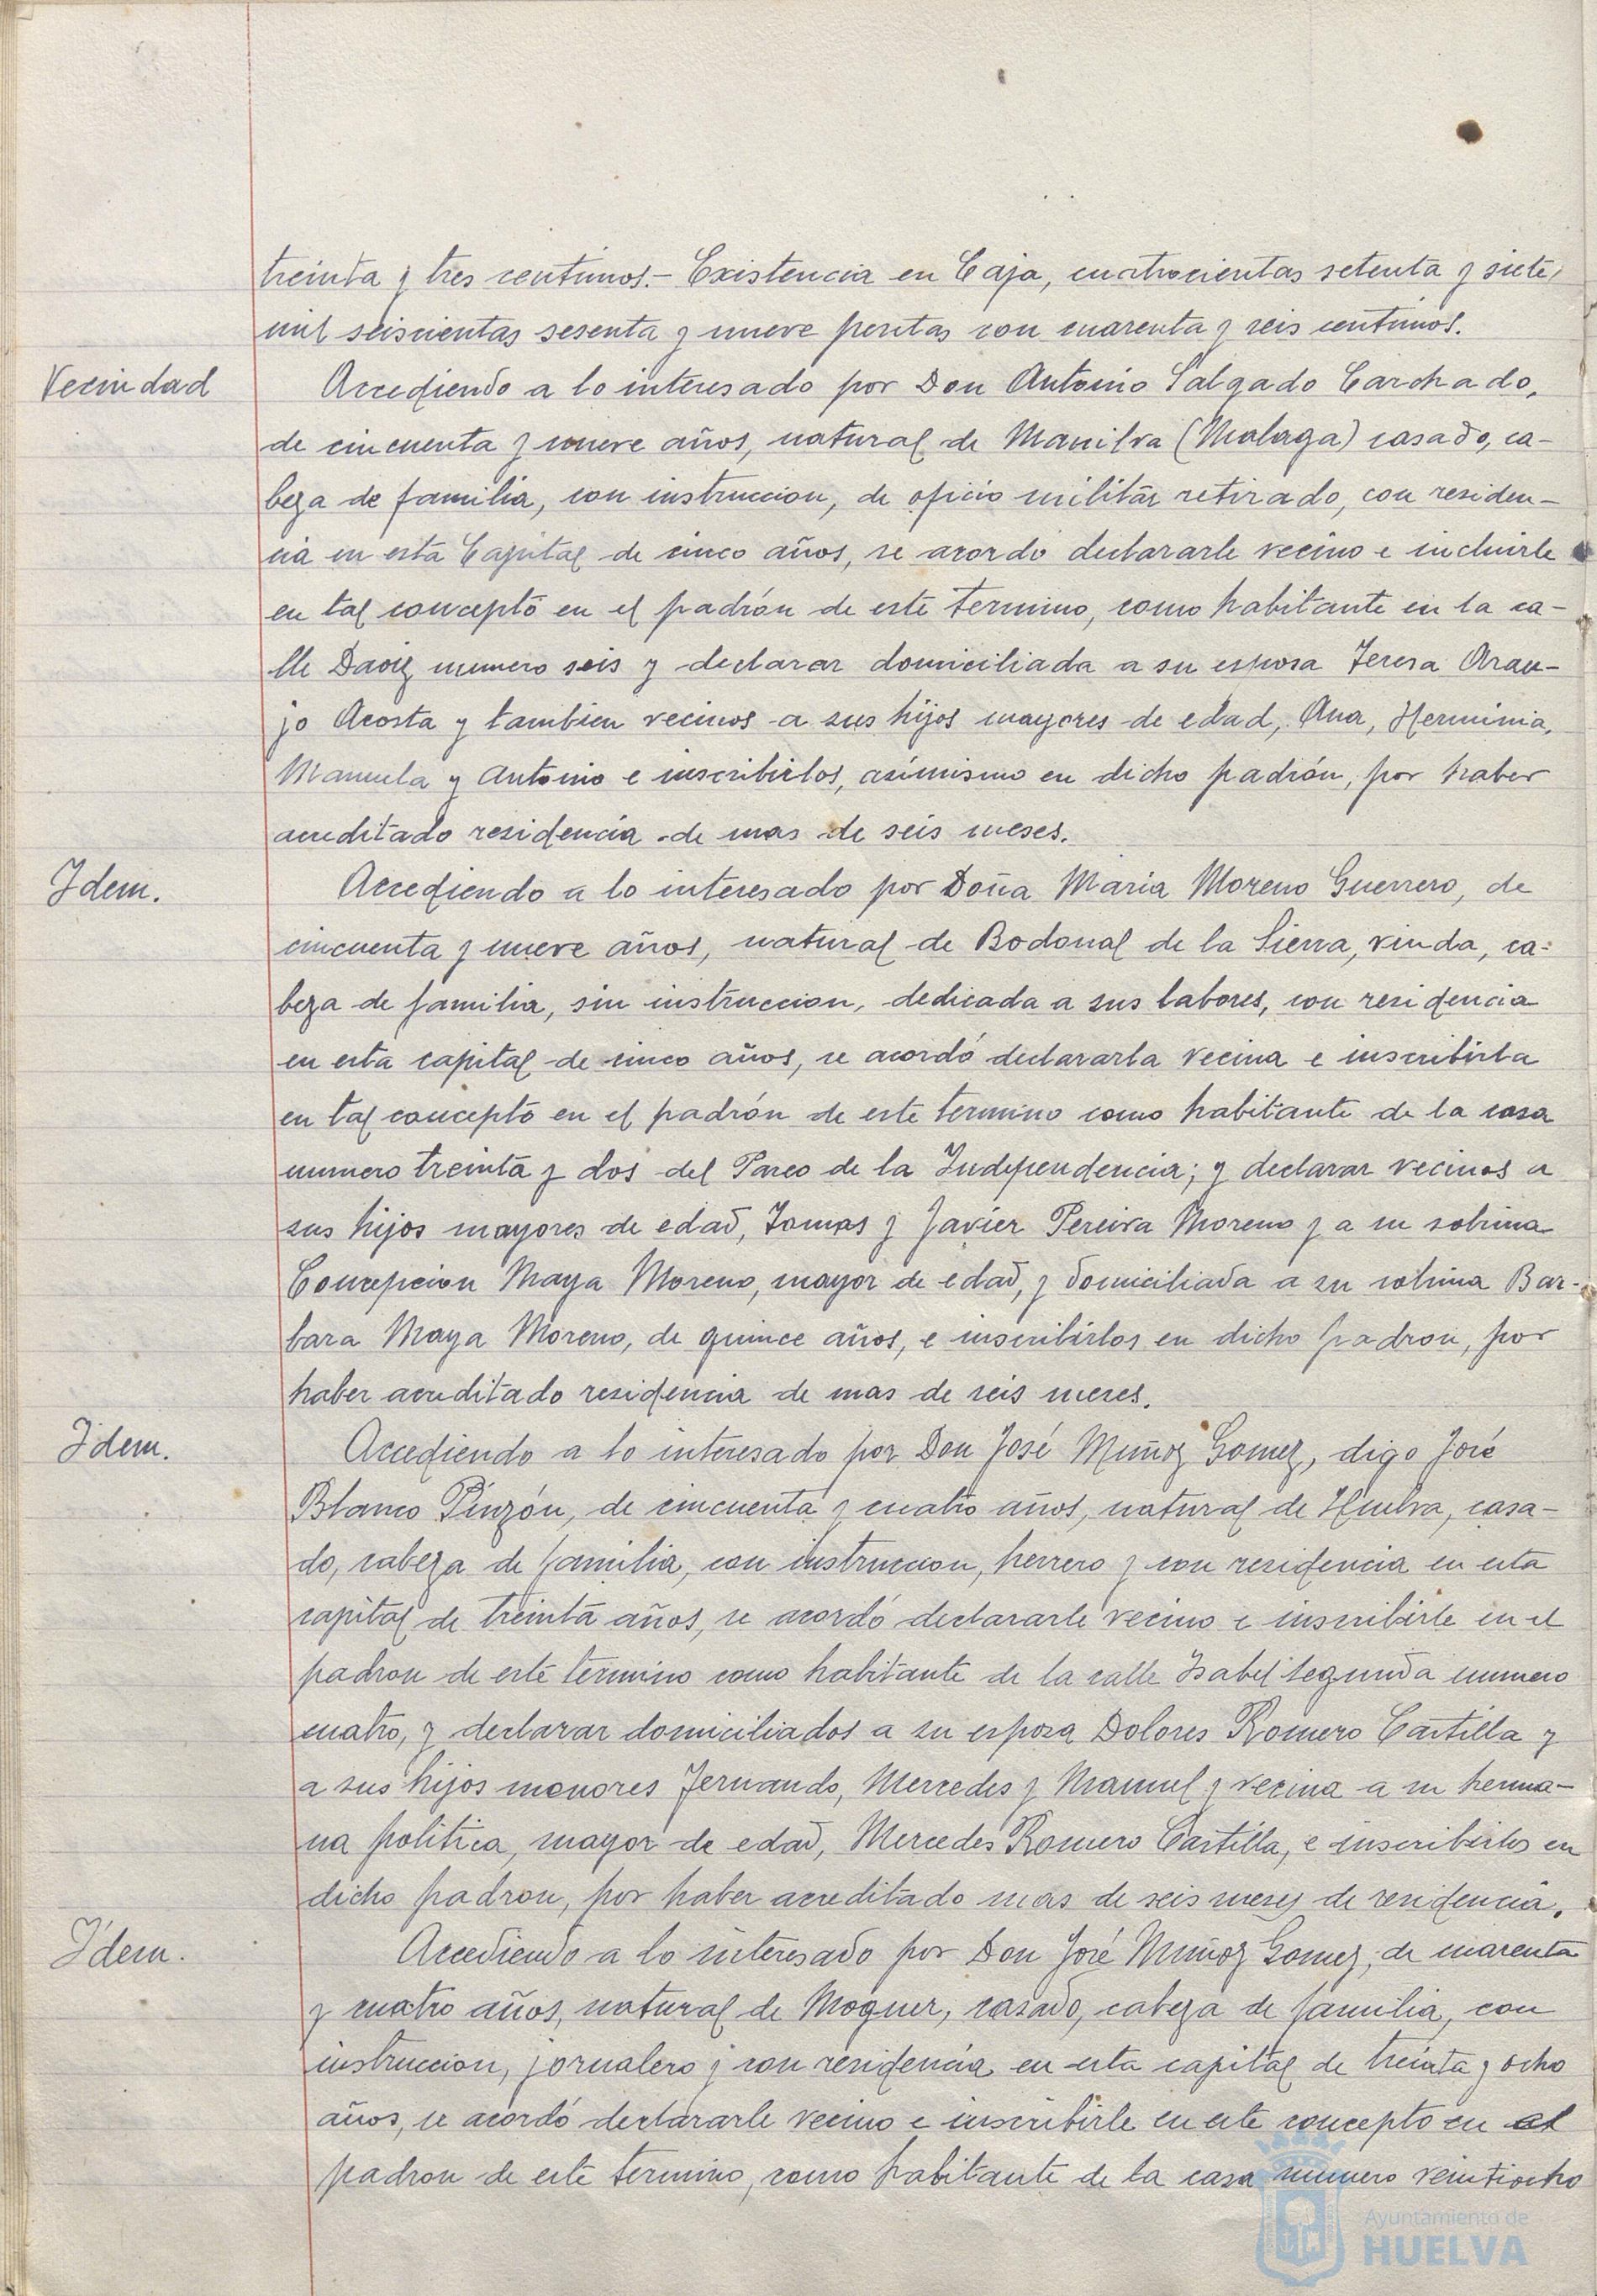 treinta y tres centimos.- Existencia en Caja, cuatrocientas setenta y siete
mil seiscientas sesenta y nueve pesetas con cuarenta y seis centimos.
Vecindad
Accediendo a lo interesado por Don Antonio Salgado Carchado,
de cincuenta y nueve años, natural de Manilva (Malaga) casado, ca-
beza de familia, con instruccion, de oficio militar retirado, con residen-
cia en esta Capital de cinco años, se acordó declararle vecino e incluirle
en tal concepto en el padrón de este termino, como habitante en la ca-
lle Daoiz numero seis y declarar domiciliada a su esposa Teresa Arau-
jo Acosta y tambien vecinos a sus hijos mayores de edad, Ana, Herminia,
Manuela y Antonio e inscribirlos, asimismo en dicho padrón, por haber
acreditado residencia de mas de seis meses.
Idem.
Accediendo a lo interesado por Doña Maria Moreno Guerrero, de
cincuenta y nueve años, natural de Bodonal de la Sierra, viuda, ca-
beza de familia, sin instruccion, dedicada a sus labores, con residencia
en esta capital de cinco años, se acordó declararla vecina e inscribirla
en tal concepto en el padrón de este termino como habitante de la casa
numero treinta y dos del Paseo de la Independencia; y declarar vecinos a
sus hijos mayores de edad, Tomas y Javier Pereira Moreno y a su sobrina
Concepcion Maya Moreno, mayor de edad, y domiciliada a su sobrina Bar-
bara Maya Moreno, de quince años, e inscribirlos en dicho padron, por
haber acreditado residencia de mas de seis meses.
Idem.
Accediendo a lo interesado por Don José Muñoz Gomez, digo José
Blanco Pinzón, de cincuenta y cuatro años, natural de Huelva, casa-
do, cabeza de familia, con instruccion, herrero y con residencia en esta
capital de treinta años, se acordó declararle vecino e inscribirle en el
padron de este término como habitante de la calle Isabel segunda numero
cuatro, y declarar domiciliados a su esposa Dolores Romero Castilla y
a sus hijos menores Fernando, Mercedes y Manuel y vecina a su herma-
na politica, mayor de edad, Mercedes Romero Castilla, e inscribirlos en
dicho padron, por haber acreditado mas de seis meses de residencia.
Idem.
Accediendo a lo interesado por Don José Muñoz Gomez, de cuarenta
y cuatro años, natural de Moguer, casado, cabeza de familia, con
instruccion, jornalero y con residencia en esta capital de treinta y ocho
años, se acordó declararle vecino e inscribirle en este concepto en el
padron de este termino, como habitante de la casa numero veintiocho
Ayuntamiento de
HUELVA